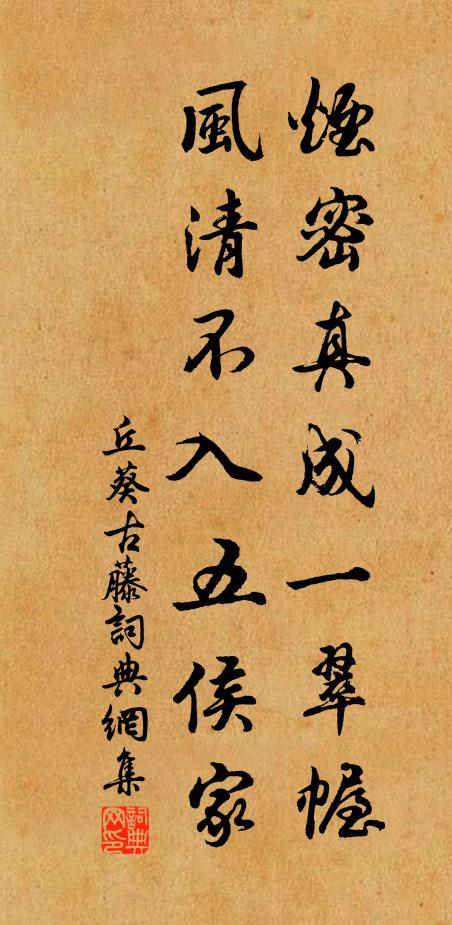 煙密真成一翠幄
風清不入五侯家
丘葵古藤詞典網集
詞典網印